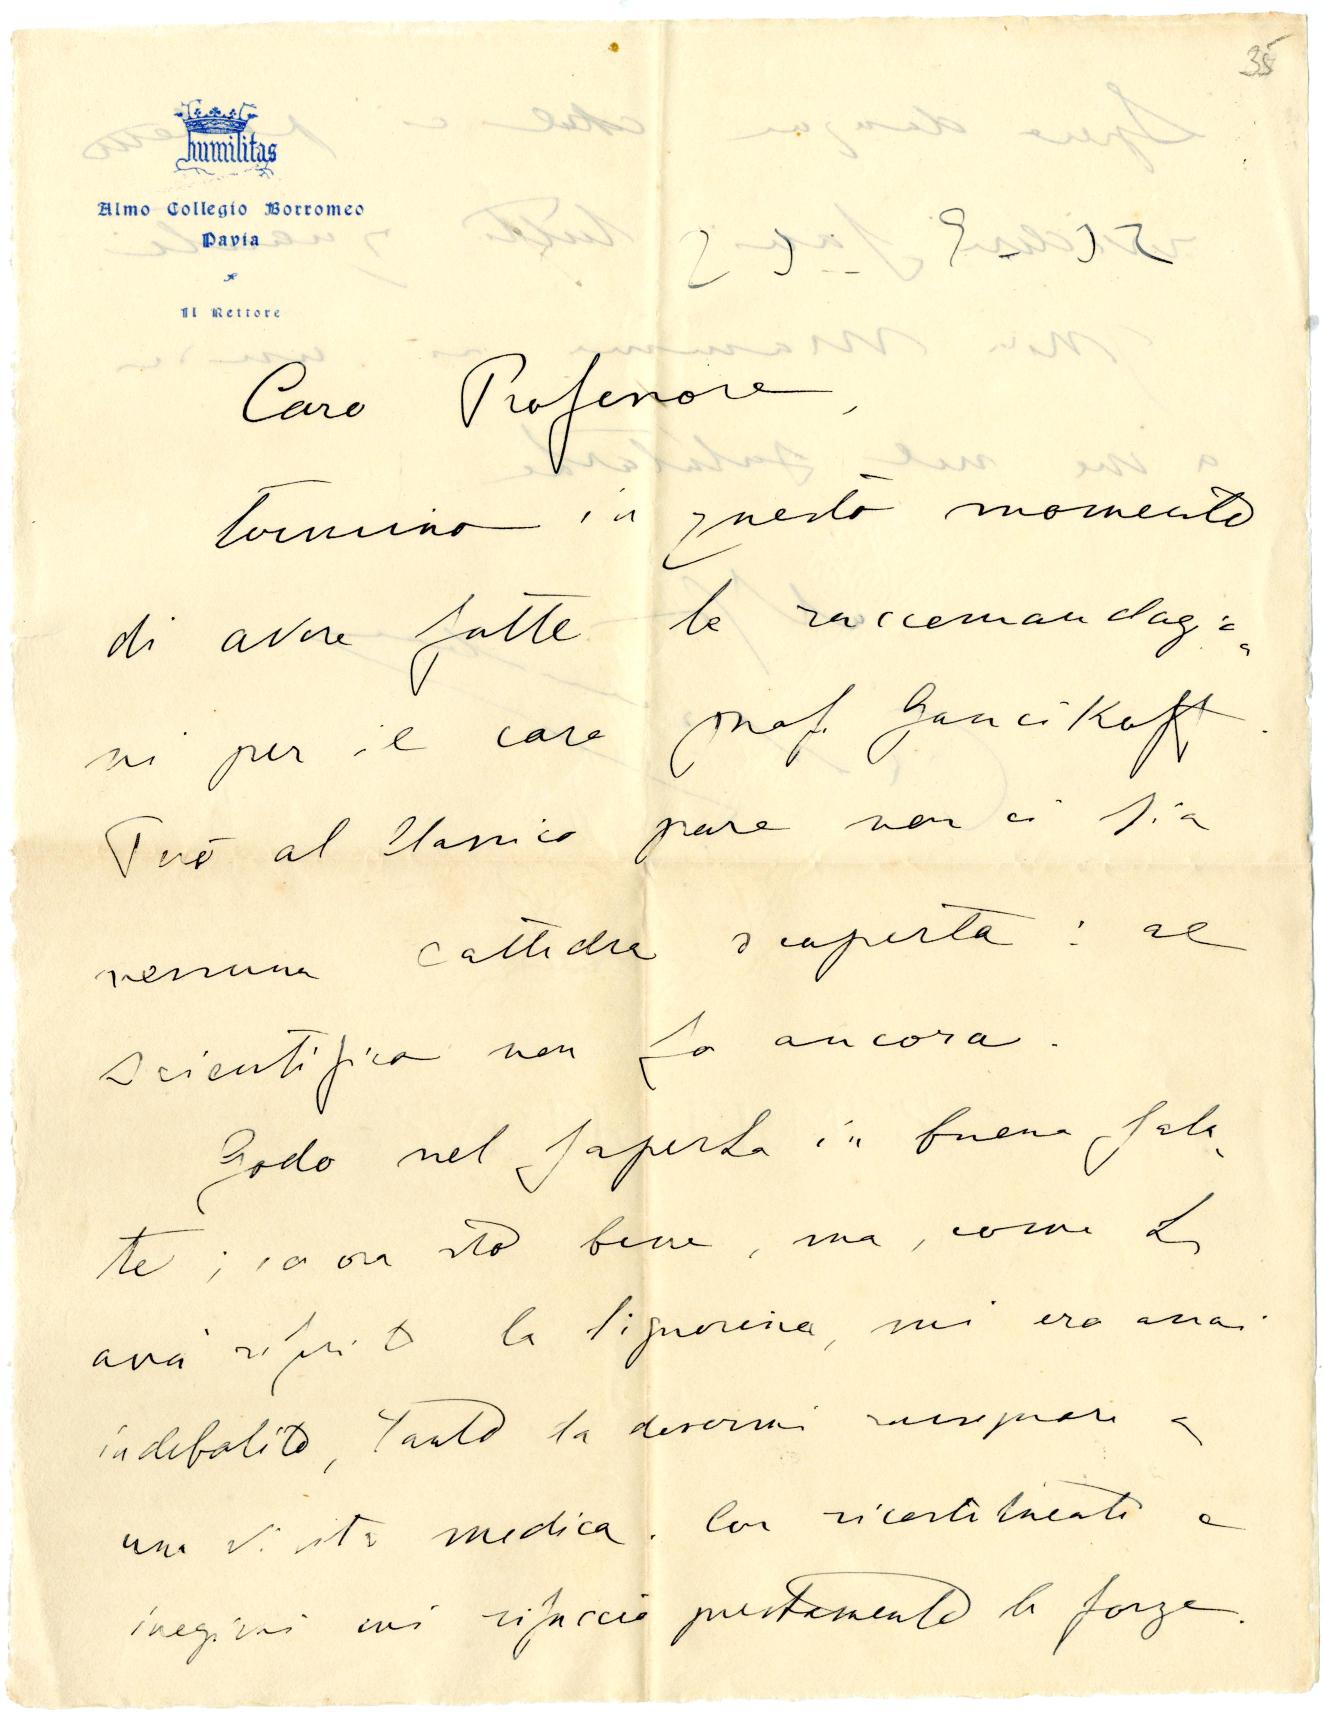 35
humilitas
Almo Collegio Borromeo
Pavia
Il Rettore
5 - 9 -
Caro Professore,
termino in questo momento
di avere fatte le raccomandazio
ni per il caro prof. Gancikoff.
Però al Classico pare non ci sia
nessuna cattedra scoperta: al
Scientifico non so ancora.
Godo nel saperLa in buona salu
te; io ora sto bene, ma, come Le
avrà riferito la Signorina, mi ero assai
indebolito, tanto da dovermi rassegnare a
una visita medica. Con ricostituenti e
inezioni mi rifaccio prestamente le forze.